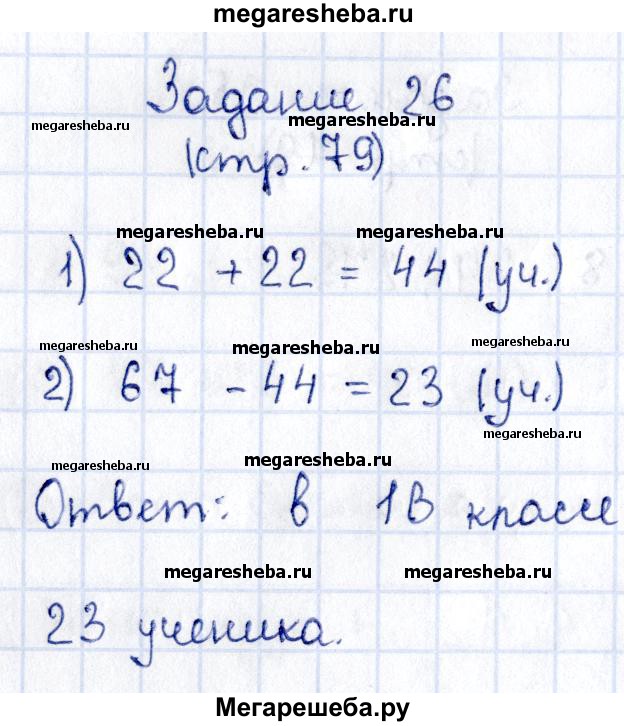 megaresheba.ru
Задание 26
megaresheba.ru megaresheba.ru
(стр. 79)
megaresheba.ru megaresheba.ru
1) 22 + 22 = 44 (уч.)
megaresheba.ru megaresheba.ru megaresheba.ru
2) 67 - 44 = 23 (уч.)
megaresheba.ru
megaresheba.ru megaresheba.ru
Ответ: в 1В классе
megaresheba.ru megaresheba.ru
23 ученика.
Мегарешеба.ру